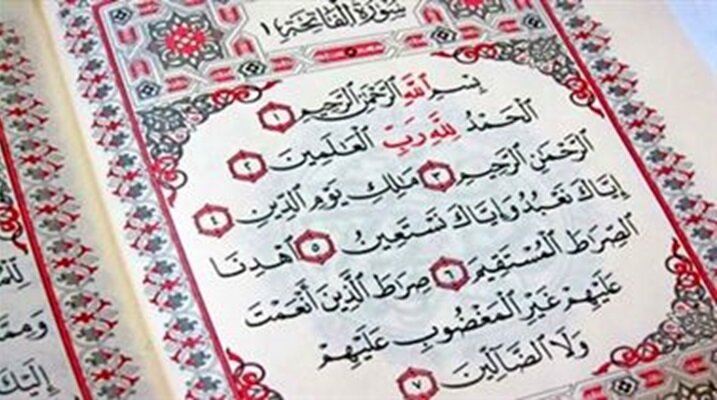 سُورَةُ الْفَاتِحَةِ ١
بِسْمِ اللَّهِ الرَّحْمَٰنِ الرَّحِيمِ ١
الْحَمْدُ لِلَّهِ رَبِّ الْعَٰلَمِينَ ٢
الرَّحْمَٰنِ الرَّحِيمِ ٣ مَٰلِكِ يَوْمِ الدِّينِ ٤
إِيَّاكَ نَعْبُدُ وَإِيَّاكَ نَسْتَعِينُ ٥ اهْدِنَا
الصِّرَاطَ الْمُسْتَقِيمَ ٦ صِرَاطَ الَّذِينَ أَنْعَمْتَ
عَلَيْهِمْ غَيْرِ الْمَغْضُوبِ عَلَيْهِمْ
وَلَا الضَّالِّينَ ٧
وَمِمَّا
إِلَيْكَ